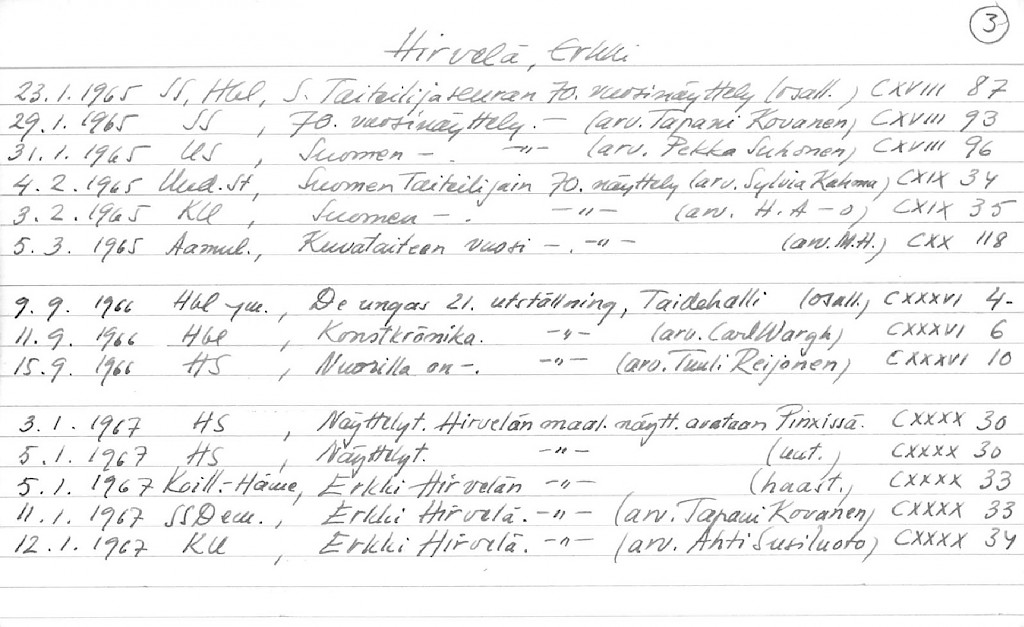 3
Hirvelä, Erkki
23.1.1965 SS, Hbl, S. Taiteilijaseuran 70. vuosinäyttely (osall.) CXVIII 87
29.1.1965 SS, 70. vuosinäyttely. - (arv. Tapani Kovanen) CXVIII 93
31.1.1965 US, Suomen - . -"- (arv. Pekka Suhonen) CXVIII 96
4.2.1965 Uud.St, Suomen Taiteilijain 70. näyttely (arv. Sylvia Kahma) CXIX 34
3.2.1965 KU, Suomen - . -"- (arv. H.A-o) CXIX 35
5.3.1965 Aamul., Kuvataiteen vuosi - . -"- (arv. M.H.) CXX 118
9.9.1966 Hbl ym., De ungas 21. utställning, Taidehalli (osall.) CXXXVI 4-
11.9.1966 Hbl, Konstkrönika. -"- (arv. Carl Wargh) CXXXVI 6
15.9.1966 HS, Nuorilla on -. -"- (arv. Tuuli Reijonen) CXXXVI 10
3.1.1967 HS, Näyttelyt. Hirvelän maal. näytt. avataan Pinxissä. CXXXX 30
5.1.1967 HS, Näyttelyt. -"- (uut.) CXXXX 30
5.1.1967 Koill.-Häme, Erkki Hirvelän -"- (haast.) CXXXX 33
11.1.1967 SSDem., Erkki Hirvelä. -"- (arv. Tapani Kovanen) CXXXX 33
12.1.1967 KU, Erkki Hirvelä. -"- (arv. Ahti Susiluoto) CXXXX 34